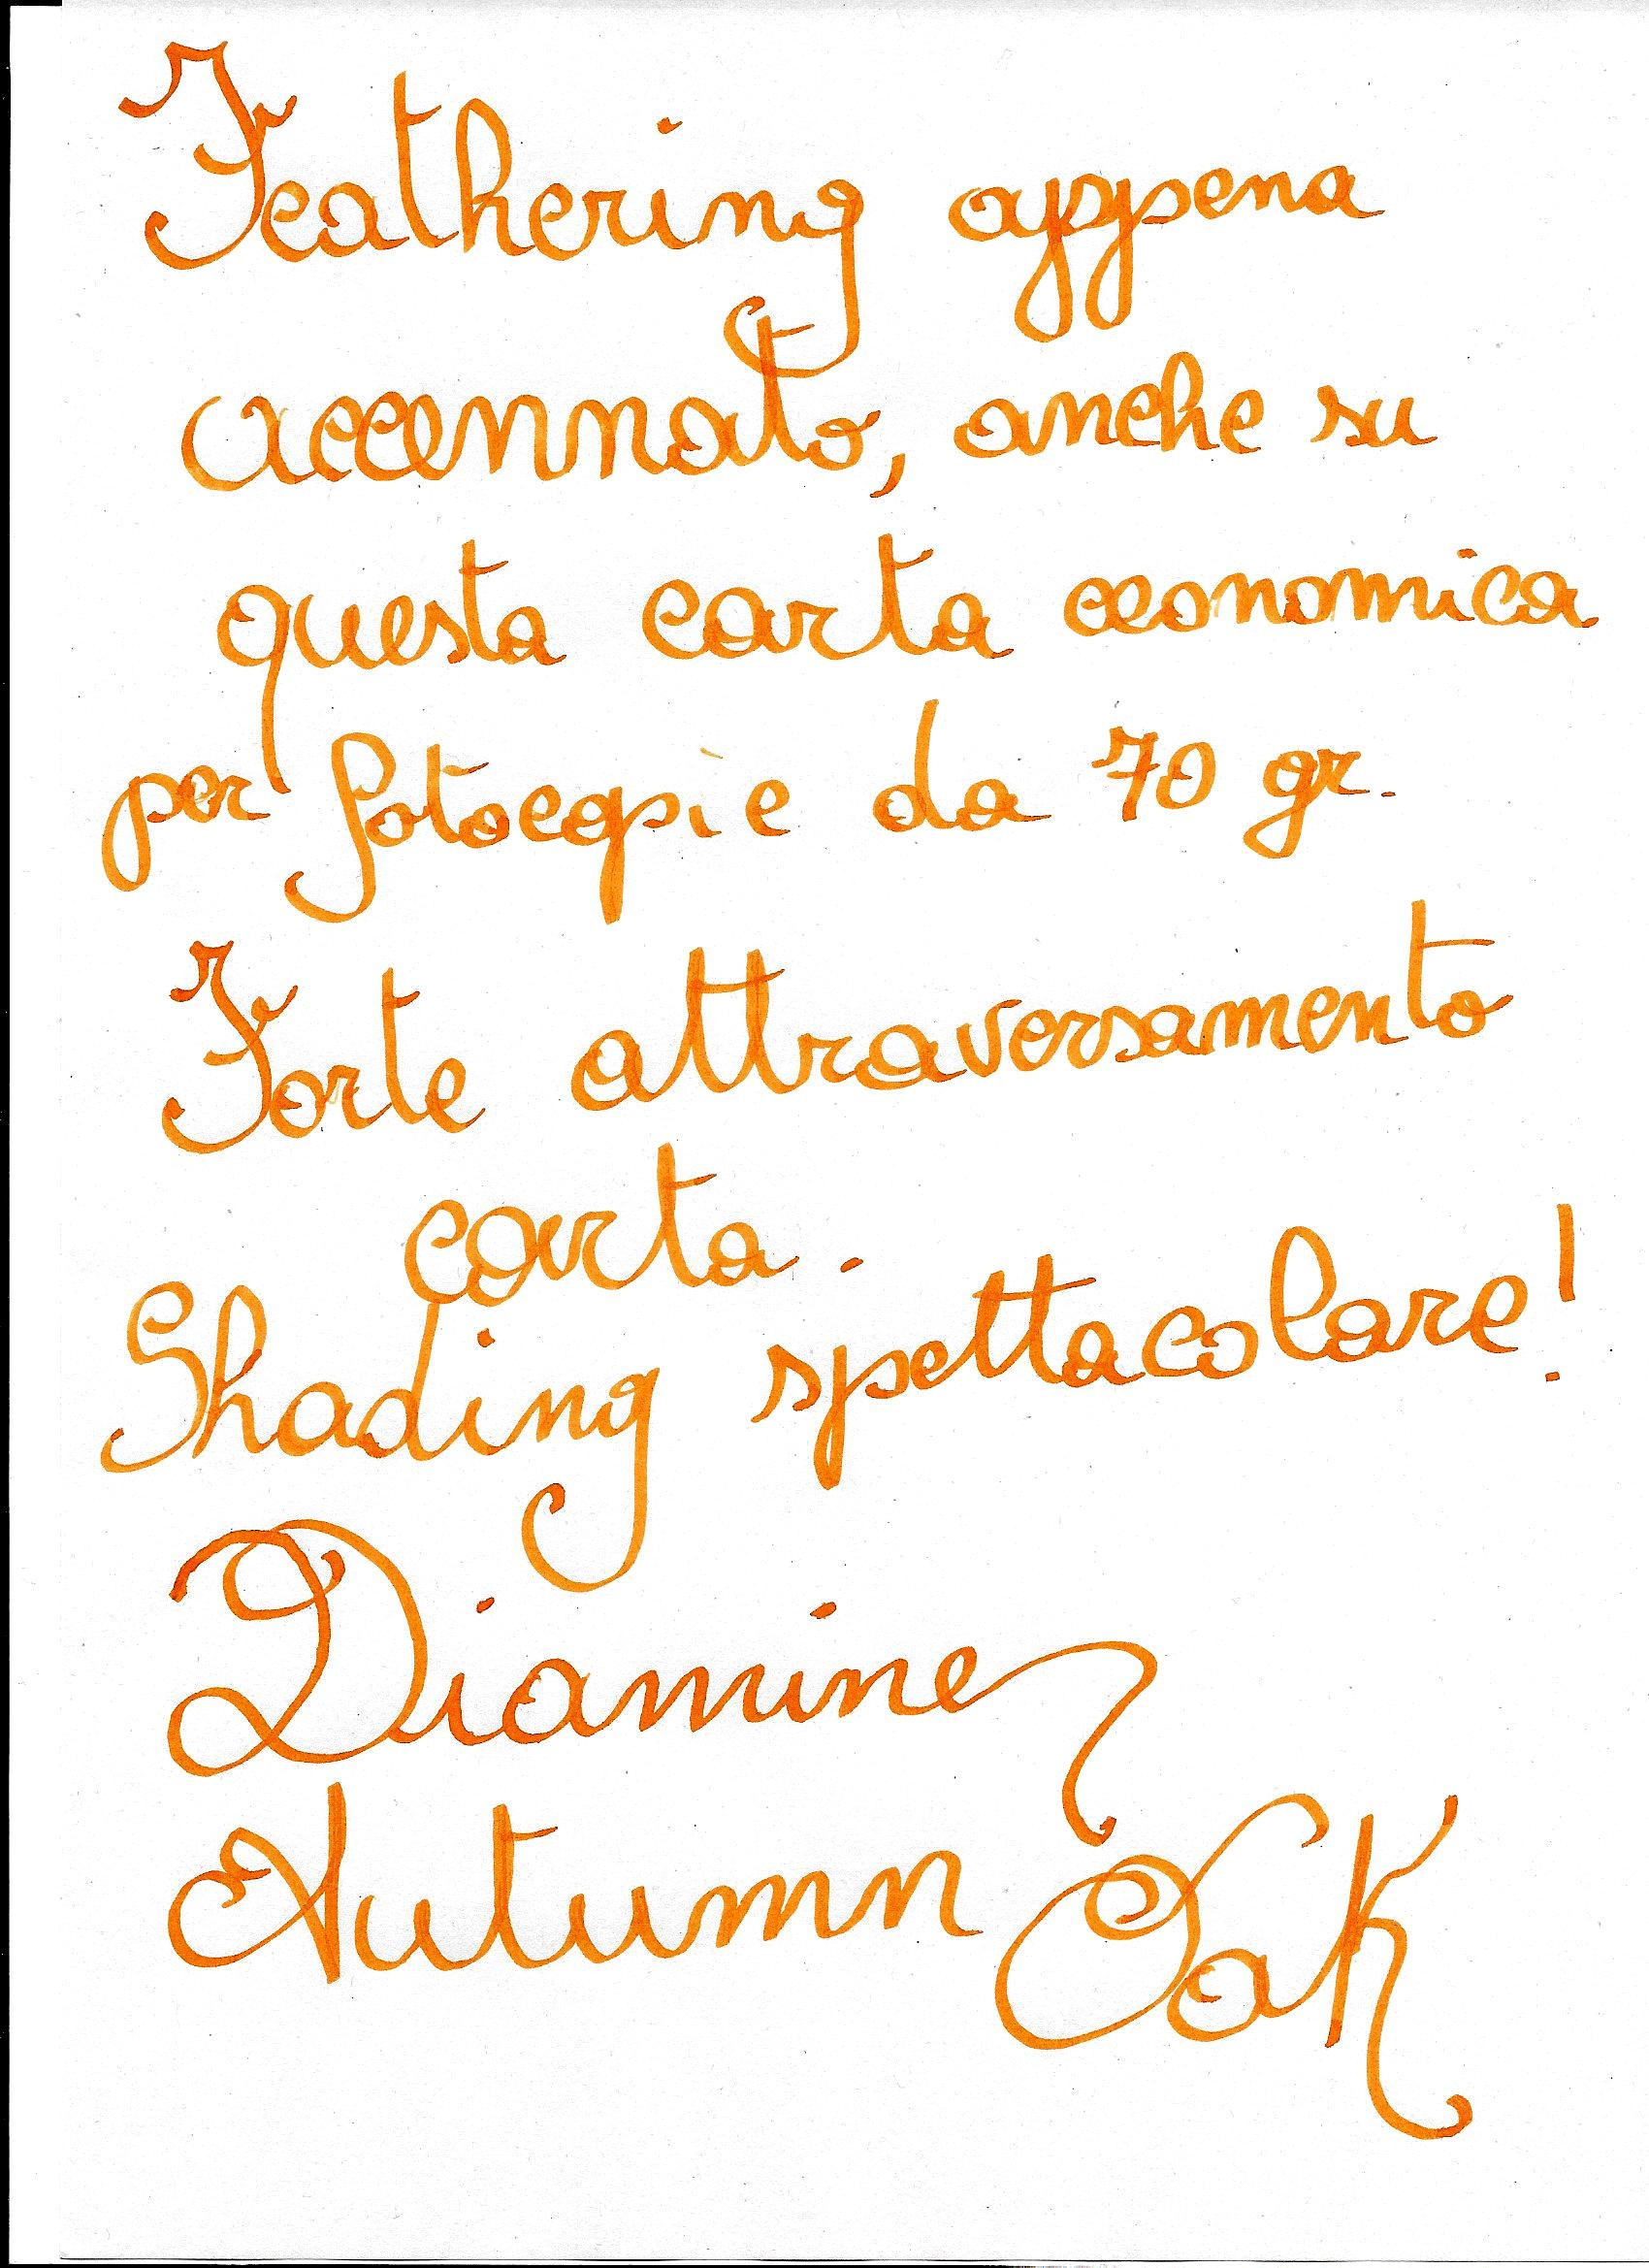 Feathering appena
accennato, anche su
questa carta economica
per fotocopie da 70 gr.
Forte attraversamento
carta.
Shading spettacolare!
Diamine
Autumn Oak